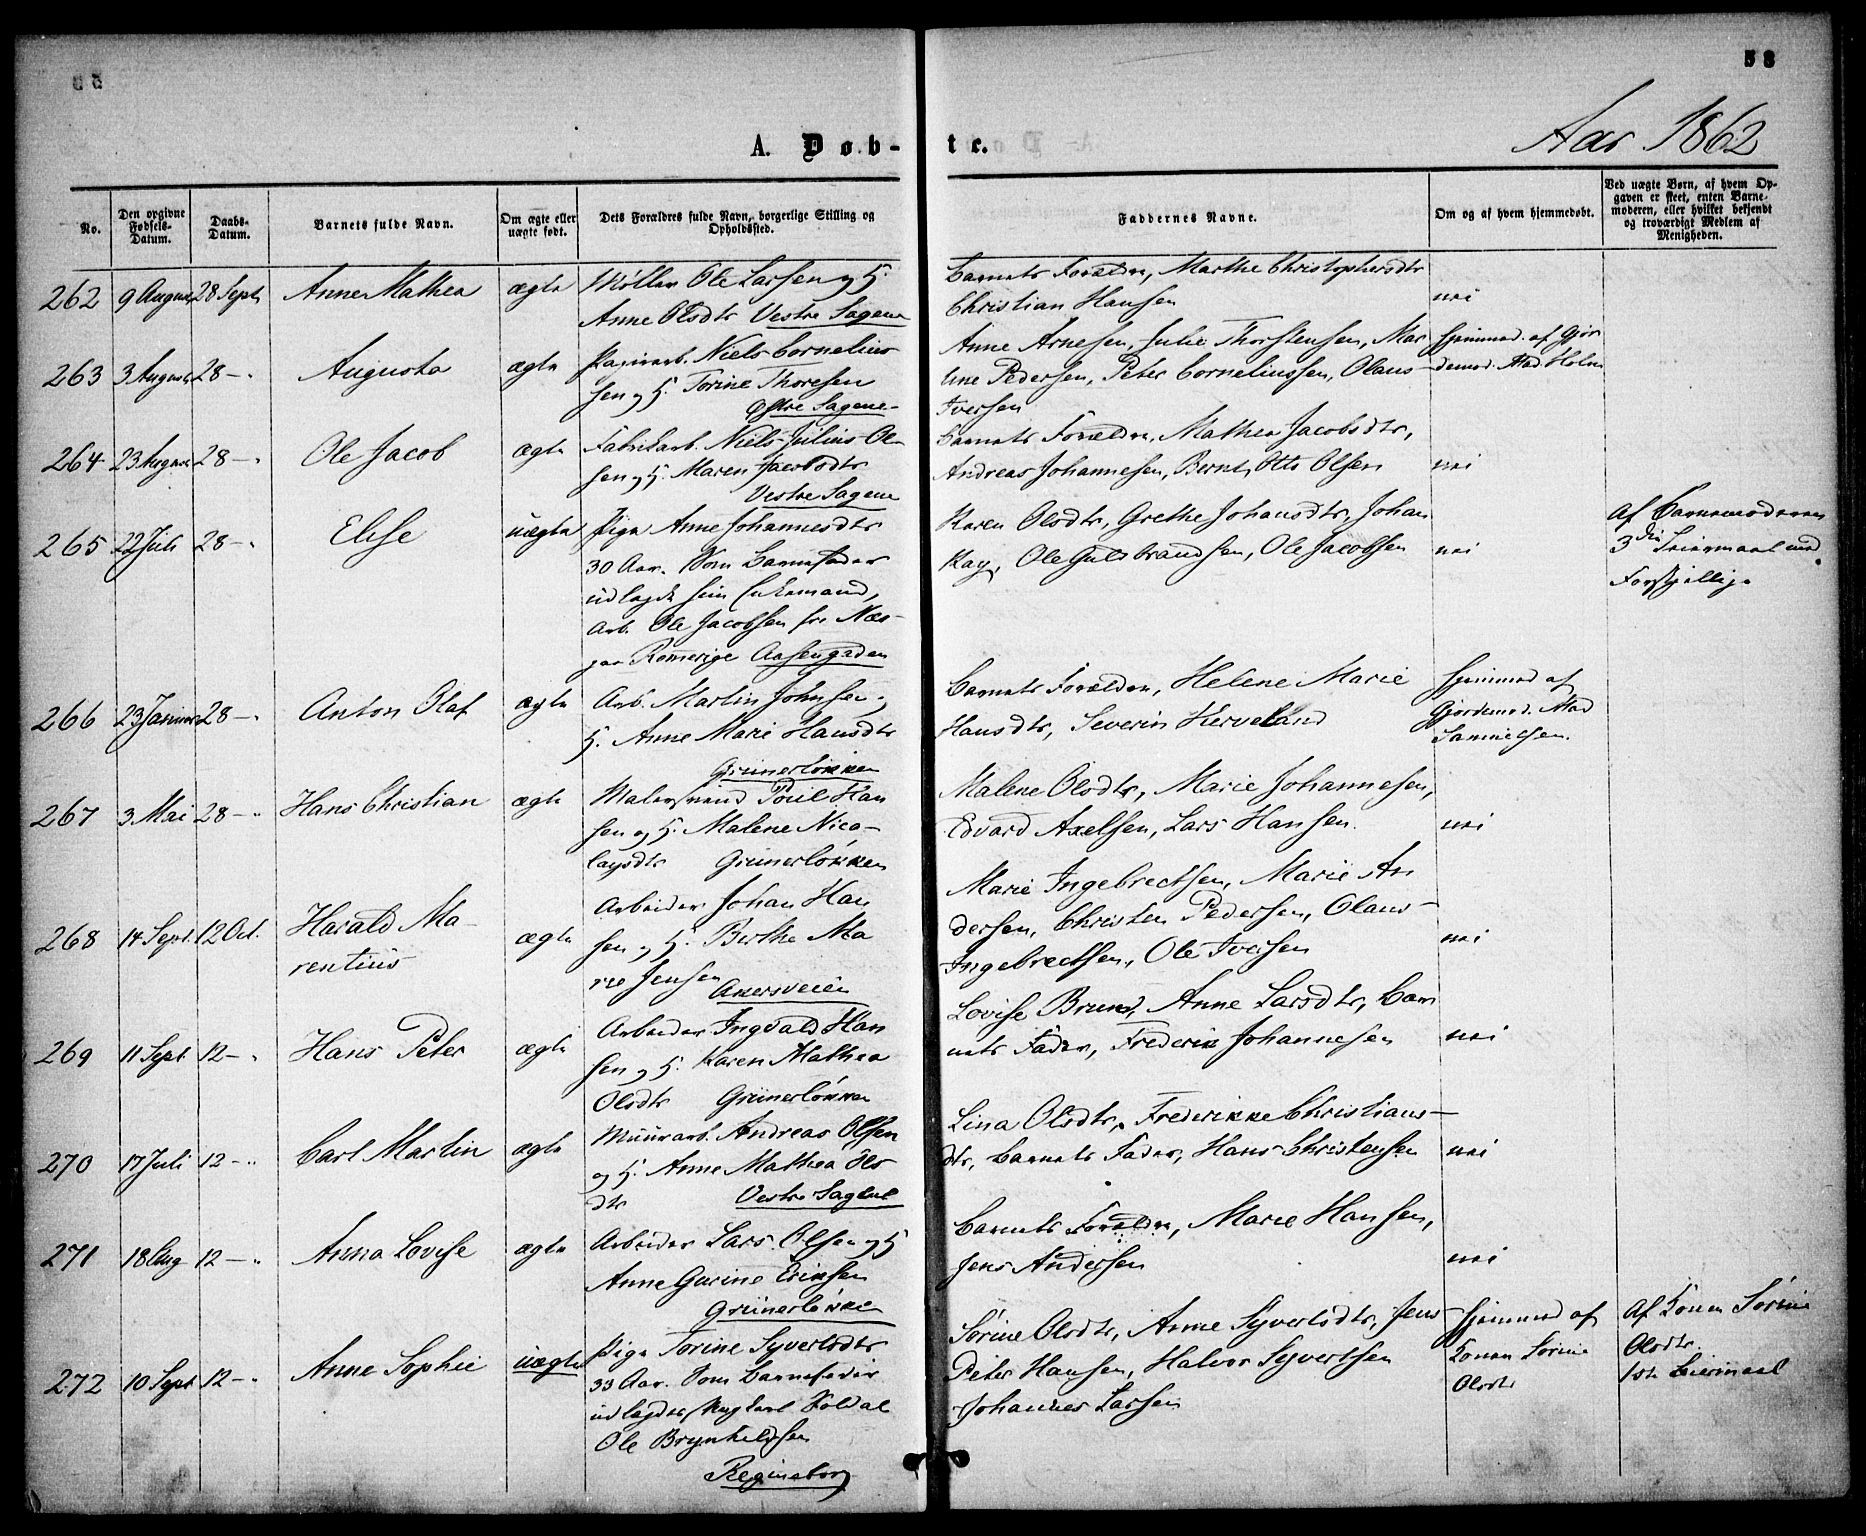 58
Aar 1862
A. Døbte.
No.
Den opgivne Fødsels-Datum.
Daabs-Datum.
Barnets fulde Navn.
Om ægte eller uægte født.
Dets Forældres fulde Navn, borgerlige Stilling og Opholdssted.
Faddernes Navne.
Om og af hvem hjemmedøbt.
Ved uægte Børn, af hvem Opgaven er skeet, enten Barnemoderen, eller hvilket bekjendt og troværdigt Medlem af Menigheden.
262 9 August 28 Sept Anne Mathea ægte Møller Ole Larsen og H. Barnets Forældre, Marthe Christophersdtr
Anne Olsdtr Vestre Sagene Christian Hansen nei
263 3 August 28 — Augusta ægte Papirarb. Niels Cornelius Anne Arnesen, Julie Thorstensen, Mar hjemmed. af Gjor
sen og H. Torine Thoresen tine Pedersen, Peter Corneliussen, Olaus demod. Mad. Holm
Østre Sagene Iversen
264 23 August 28 — Ole Jacob ægte Fabrikarb. Niels Julius Ol Barnets Forældre, Mathea Jacobsdtr,
sen og H. Maren Jacobsdtr Andreas Johannesen, Bernt Otto Olsen nei
Vestre Sagene
265 22 Juli 28 — Elise uægte Pige Anne Johannesdtr Karen Olsdtr, Grethe Johansdtr, Johan af Barnemoderen
30 Aar. Som Barnefader Kay, Ole Gulbrandsen, Ole Jacobsen nei 3die Leiermaal med
udlagde sin Forskjellige
Arb. Ole Jacobsen fra Næs
paa Romerige Aasengaden
266 23 Januar 28 — Anton Olaf ægte Arb. Martin Johnsen, Barnets Forældre, Helene Marie hjemmed af
H. Anne Marie Hansdtr Hansdtr, Severin Herveland Gjordemod. Mad
Grünerløkken Samuelsen.
267 3 Mai 28 — Hans Christian ægte Malersvend Poul Han Malene Olsdtr, Marie Johannesen,
sen og H. Malene Nico- Edvard Axelsen, Lars Hansen. nei
laysdtr Grünerløkken
268 14 Sept. 12 Oct. Harald Ma- ægte Arbeider Johan Han Marie Ingebrectsen, Marie An
rentius sen og H. Berthe Ma dersen, Christen Pedersen, Olaus nei
rie Jensen Ingebrectsen, Ole Iversen
Akersveien
269 11 Sept. 12 — Hans Peter ægte Arbeider Ingvald Han Lovise Brun, Anne Larsdtr, Bar
sen og H. Karen Mathea nets Fader, Frederik Johannesen nei
Olsdtr Grünerløkken
270 17 Juli 12 — Carl Martin ægte Muurarb. Andreas Olsen Lina Olsdtr, Frederikke Christians-
og H. Anne Mathea Ols dtr, Barnets Fader, Hans Christensen nei
dtr Vestre Sagene
271 18 Aug 12 — Anna Lovise ægte Arbeider Lars Olsen og H Barnets Forældre, Marie Hansen,
Anne Gurine Eriksen Jens Andersen nei
Grünerløkken
272 10 Sept 12 — Anne Sophie uægte Pige Torine Syvertsdtr Sørine Olsdtr, Anne Syvertsdtr, Jens hjemmed af af Konen Sørine
33 Aar. Som Barnefader Peter Hansen, Halvor Syvertsen Konen Sørine Olsdtr.
udlagdes Johannes Larsen Olsdtr 1ste Leiermaal
Ole Brynhildsen
Regineborg